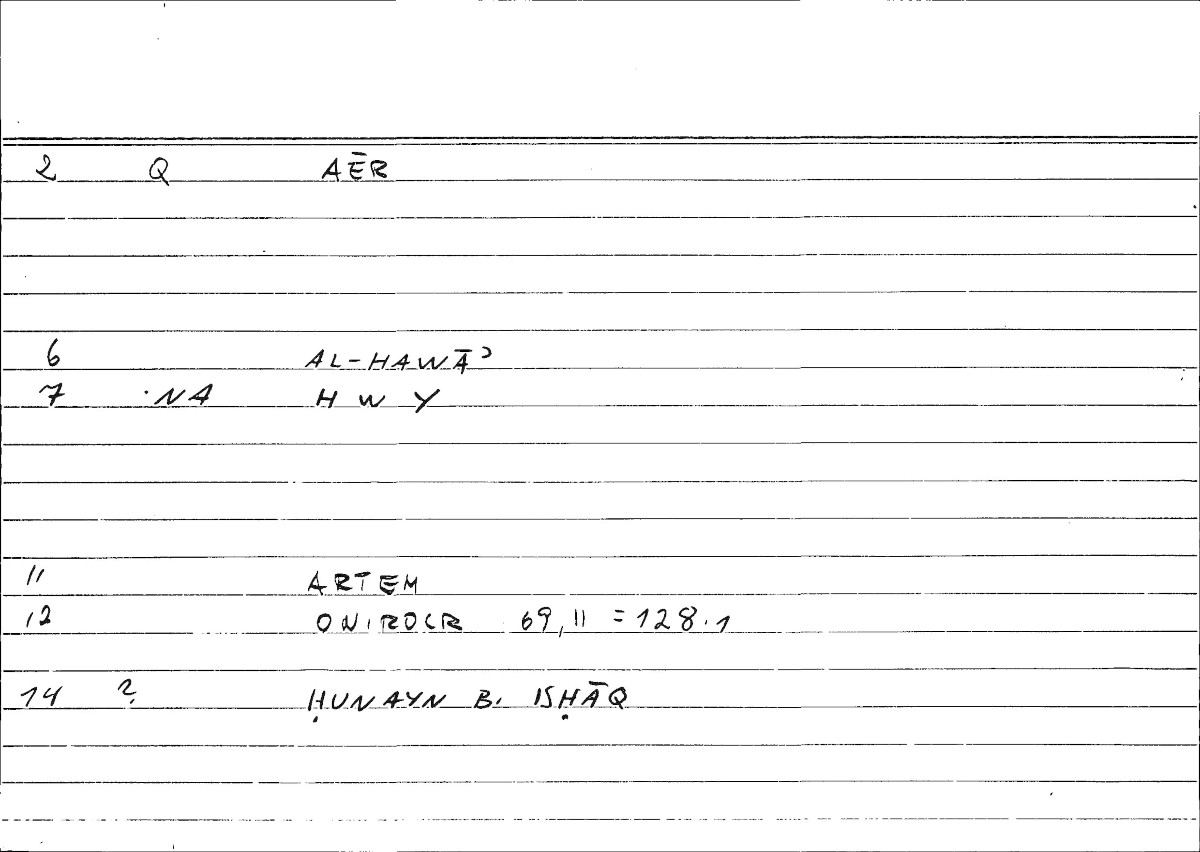 2 Q AĒR
6 AL-HAWĀʾ
7 NA H W Y
11 ARTEM
12 ONIROCR 69,11 = 128.1
14 ? ḤUNAYN B. ISḤĀQ